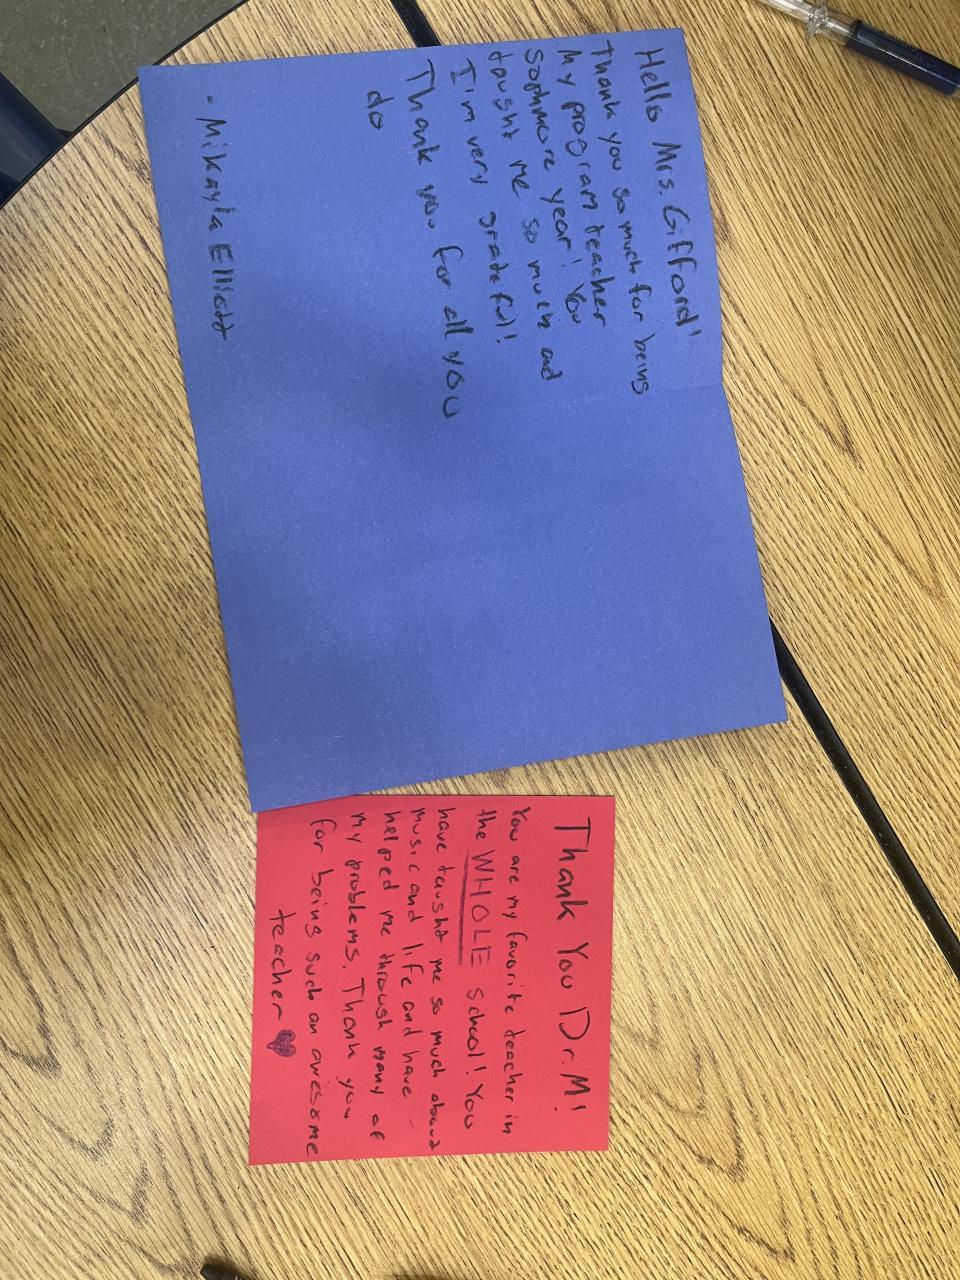 Hello Mrs. Gifford!
Thank you so much for being
My program teacher
Sophmore year! You
taught me so much and
I'm very grateful!
Thank you for all you
do
- Mikayla Elliott
Thank You Dr. M!
You are my favorite teacher in
the WHOLE school! You
have taught me so much about
music and life and have
helped me through many of
my problems. Thank you
for being such an awesome
teacher ♥